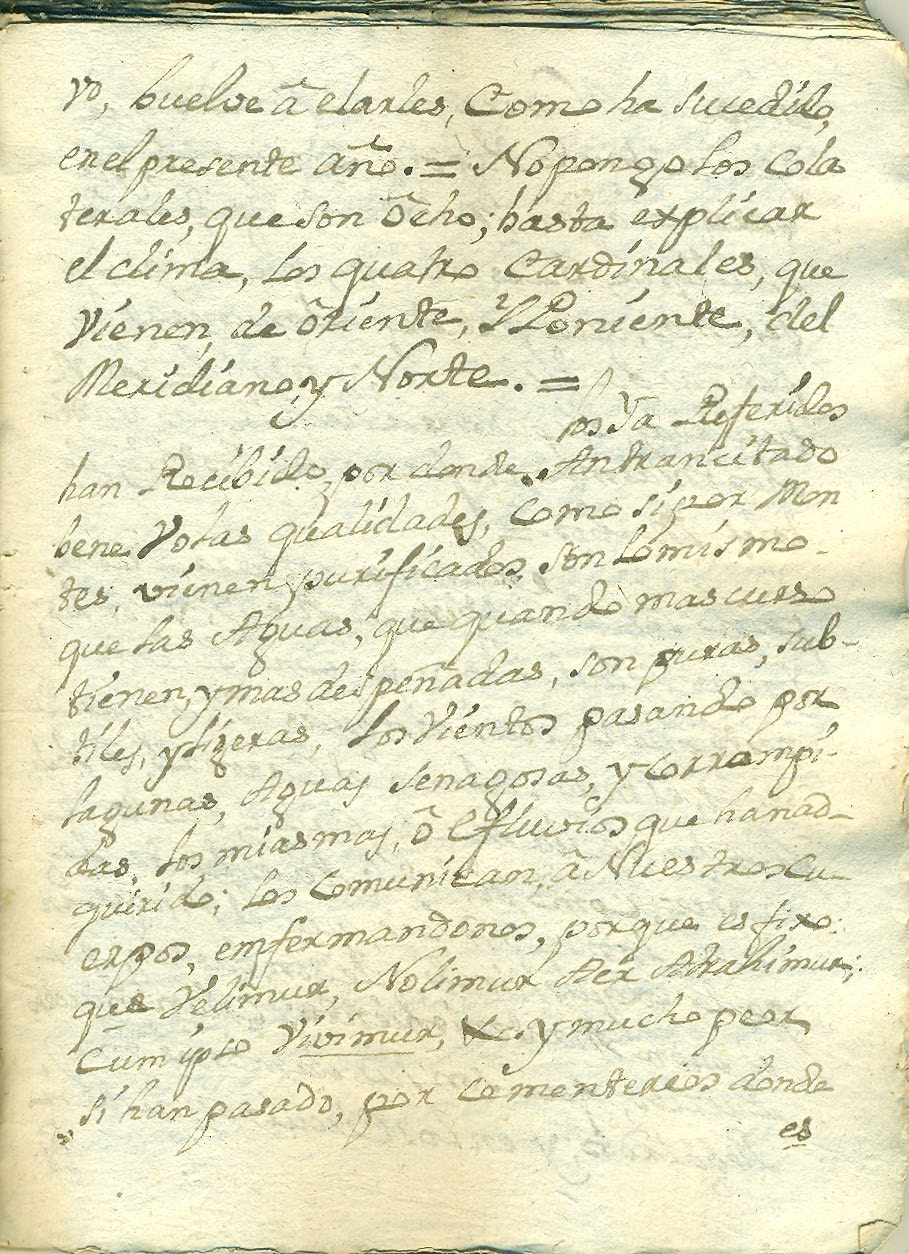 vo, buelve â elarles, Como ha sucedido,
en el presente año. = No pongo los Cola
terales, que son ôcho; hasta explicar
el clima, los quatro Cardinales, que
Vienen, de ôriente, Y Poniente, del
Meridiano, y Norte. =
los Ya Referidos
han Recibido, por donde, An trancitado
bene Volas qualidades, Como si por Mon
tes, vienen purificados, son lo mismo
que las Aguas, que quando mas curso
tienen, y mas despeñadas, son puras, sub-
tiles, y ligeras, los Vientos pasando por
lagunas, Aguas senagosas, y corrompi-
das, los miasmas, ô Efluvios que han ad-
quirido; los Comunican, â Nuestros Cu-
erpos, emfermandonos, porque es fixo
que Velimur, Nolimur Aer Atrahimur;
Cum ipso Vivimur, &c. y mucho peor
si han pasado, por Cementerios donde
es